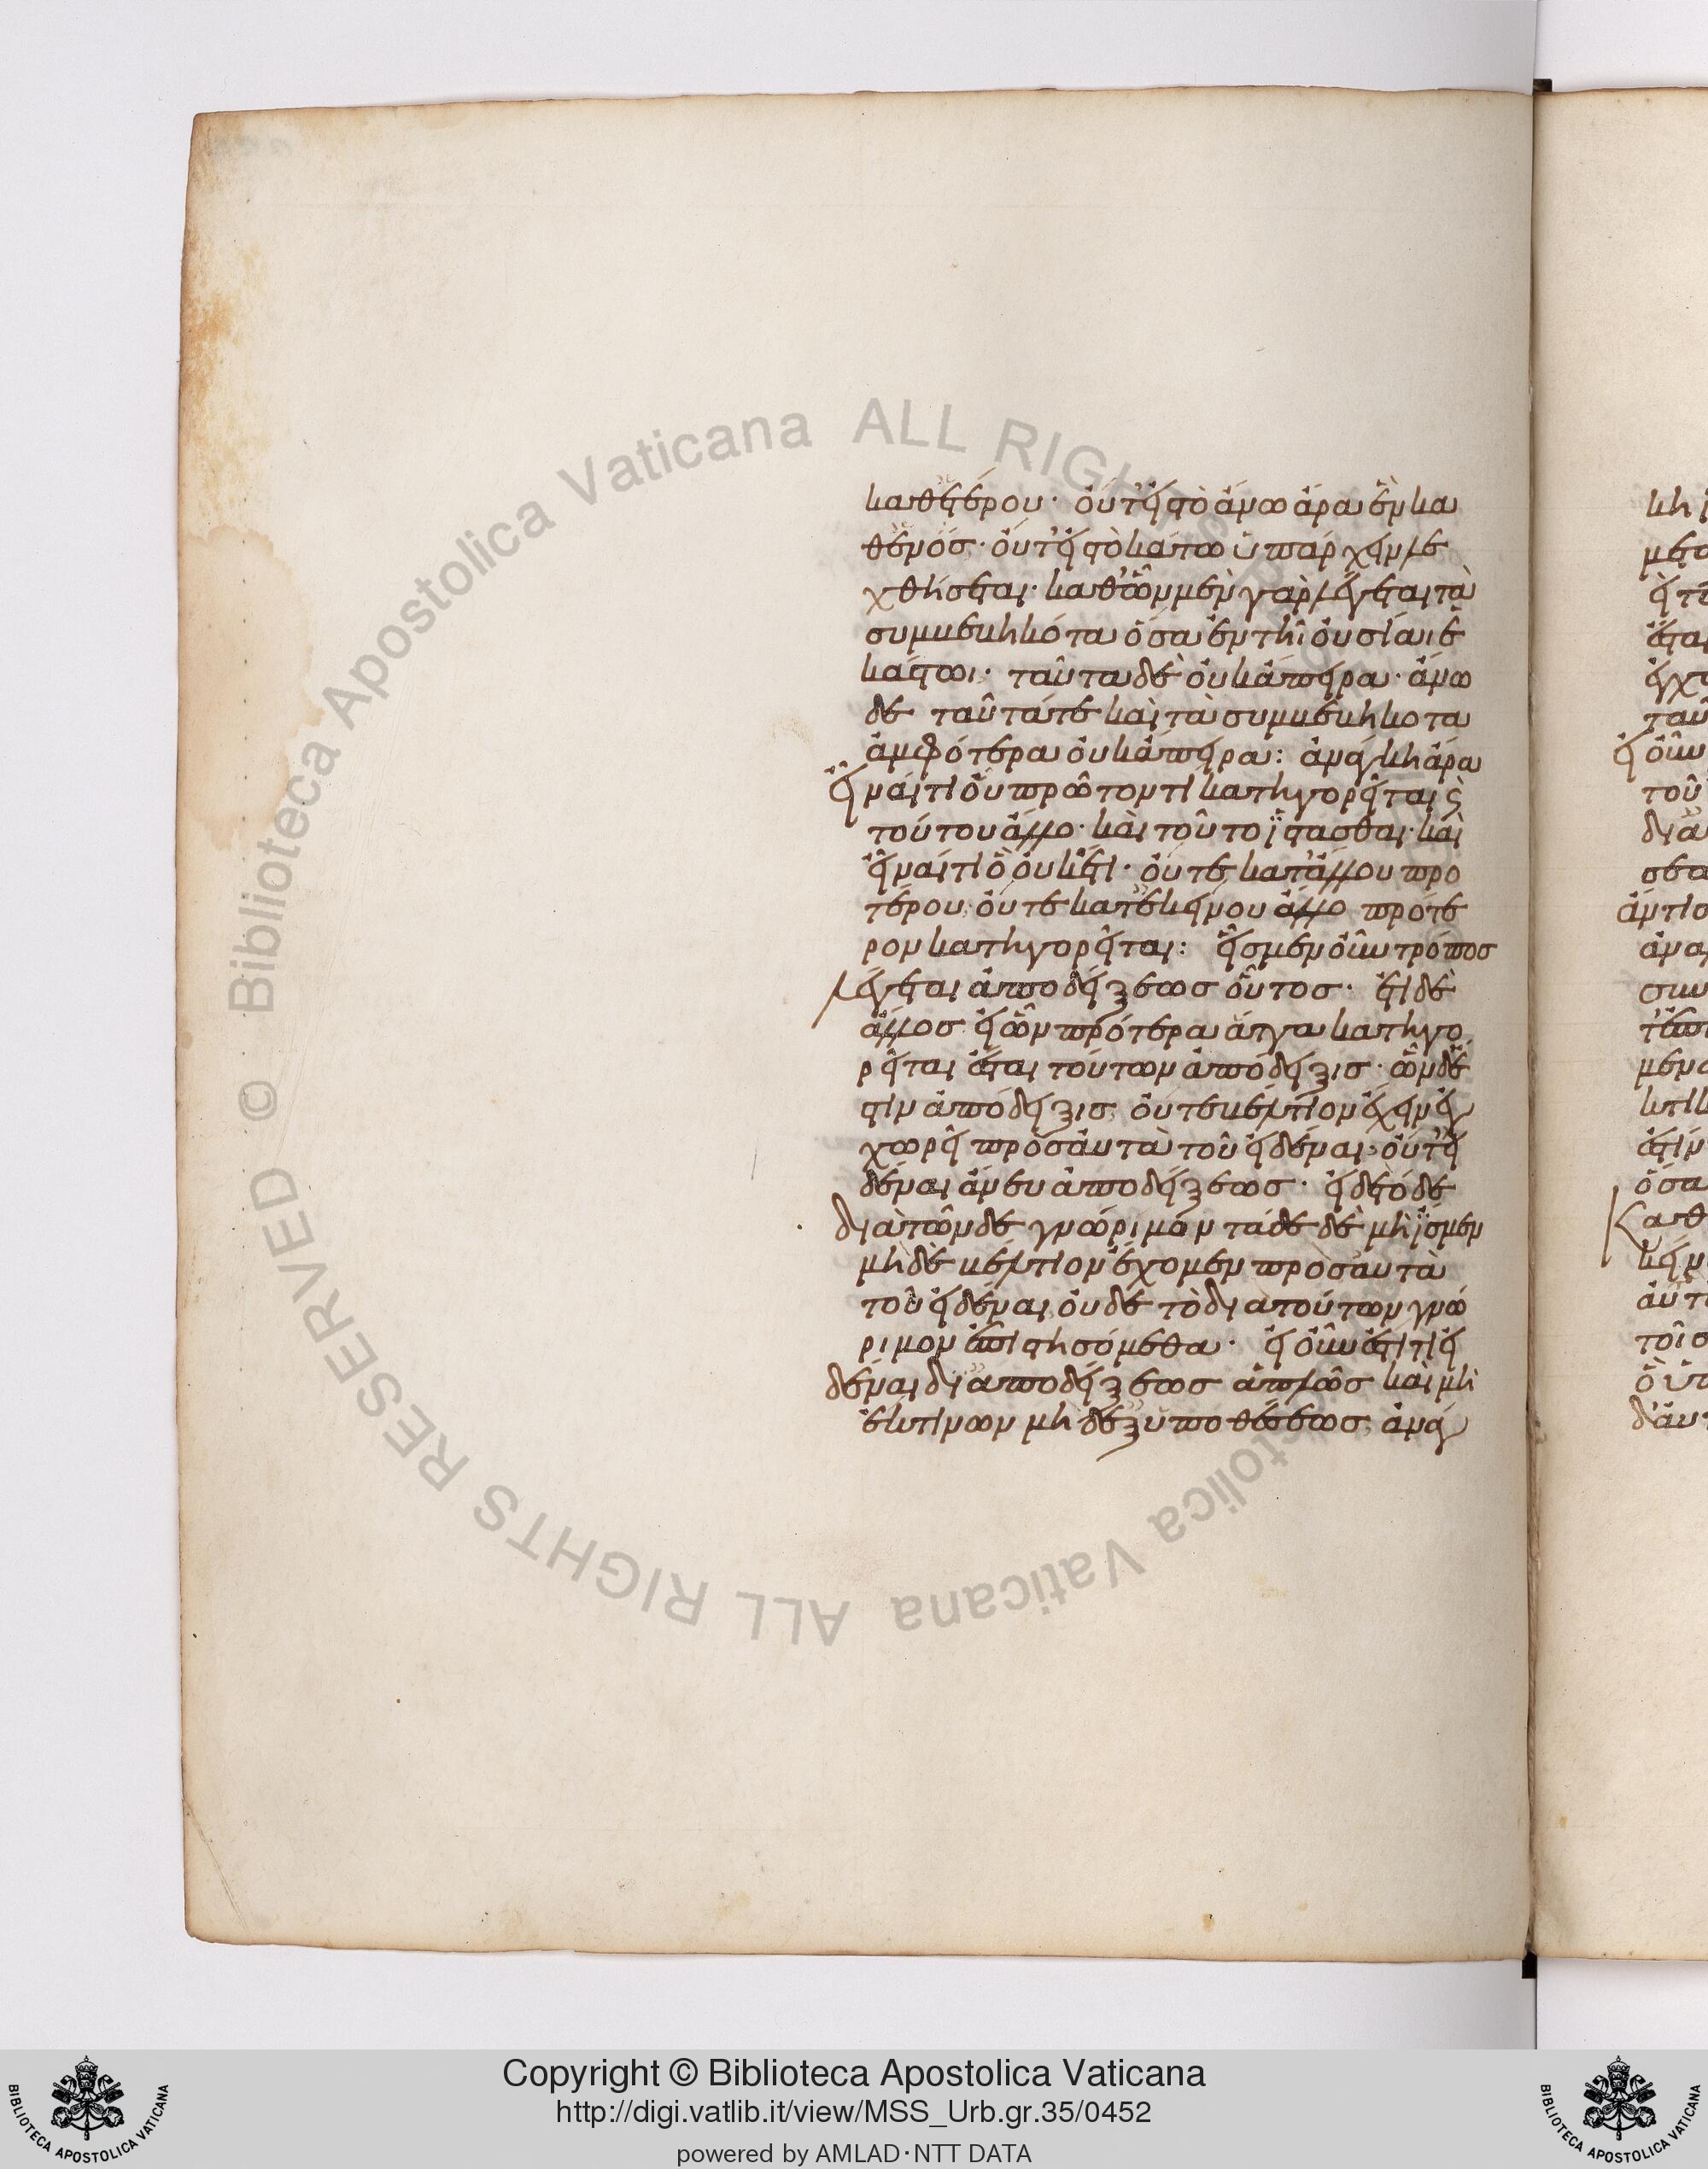 καθ' ἑτέρου· οὔτ' εἰς τὸ ἄνω ἄρα ἓν κα
θ' ἑνὸς· οὔτ' εἰς τὸ κάτω ὑπάρχειν λε
χθήσεται· καθ' ὧν μὲν γὰρ λέγεται τὰ
συμβεβηκότα ὅσα ἐν τῆι οὐσίαι ἑ
κάστωι· ταῦτα δὲ οὐκ ἄπειρα· ἄνω
δὲ ταῦτά τε καὶ τὰ συμβεβηκοτα
ἀμφότερα οὐκ ἄπειρα: ἀνάγκη ἄρα
εἶναί τι οὗ πρῶτον τι κατηγορεῖται καὶ
τούτου ἄλλο· καὶ τοῦτο ἵστασθαι· καὶ
εἶναί τι ὃ οὐκέτι· οὔτε κατ' ἄλλου προ
τέρου, οὔτε κατ' ἐκείνου ἄλλο πρότε
ρον κατηγορεῖται: εἷς μὲν οὖν τρόπος
λέγεται ἀποδείξεως οὗτος· ἔτι δὲ
ἄλλος εἰ ὧν πρότερα ἄττα κατηγο
ρεῖται ἔσται τούτων ἀπόδειξις· ὧν δ' ἔ
στιν ἀπόδειξις, οὔτε βέλτιον ἔχειν ἐγ
χωρεῖ πρὸς αὐτὰ τοῦ εἰδέναι, οὔτ' εἰ
δέναι ἄνευ ἀποδείξεως· εἰ δὲ τόδε
διὰ τῶνδε γνώριμον τάδε δὲ μὴ ἴσμεν
μηδὲ βέλτιον ἔχομεν πρὸς αὐτὰ
τοῦ εἰδέναι, οὐδὲ τὸ διὰ τούτων γνώ
ριμον ἐπιστησόμεθα· εἰ οὖν ἔστι τι εἰ
δέναι δι' ἀποδείξεως ἁπλῶς καὶ μὴ
ἐκ τινων μηδ' ἐξ ὑποθέσεως, ἀνάγ
Copyright © Biblioteca Apostolica Vaticana
http://digi.vatlib.it/view/MSS_Urb.gr.35/0452
powered by AMLAD·NTT DATA
BIBLIOTECA APOSTOLICA VATICANA
BIBLIOTECA APOSTOLICA VATICANA
© Biblioteca Apostolica Vaticana ALL RIGHTS RESERVED